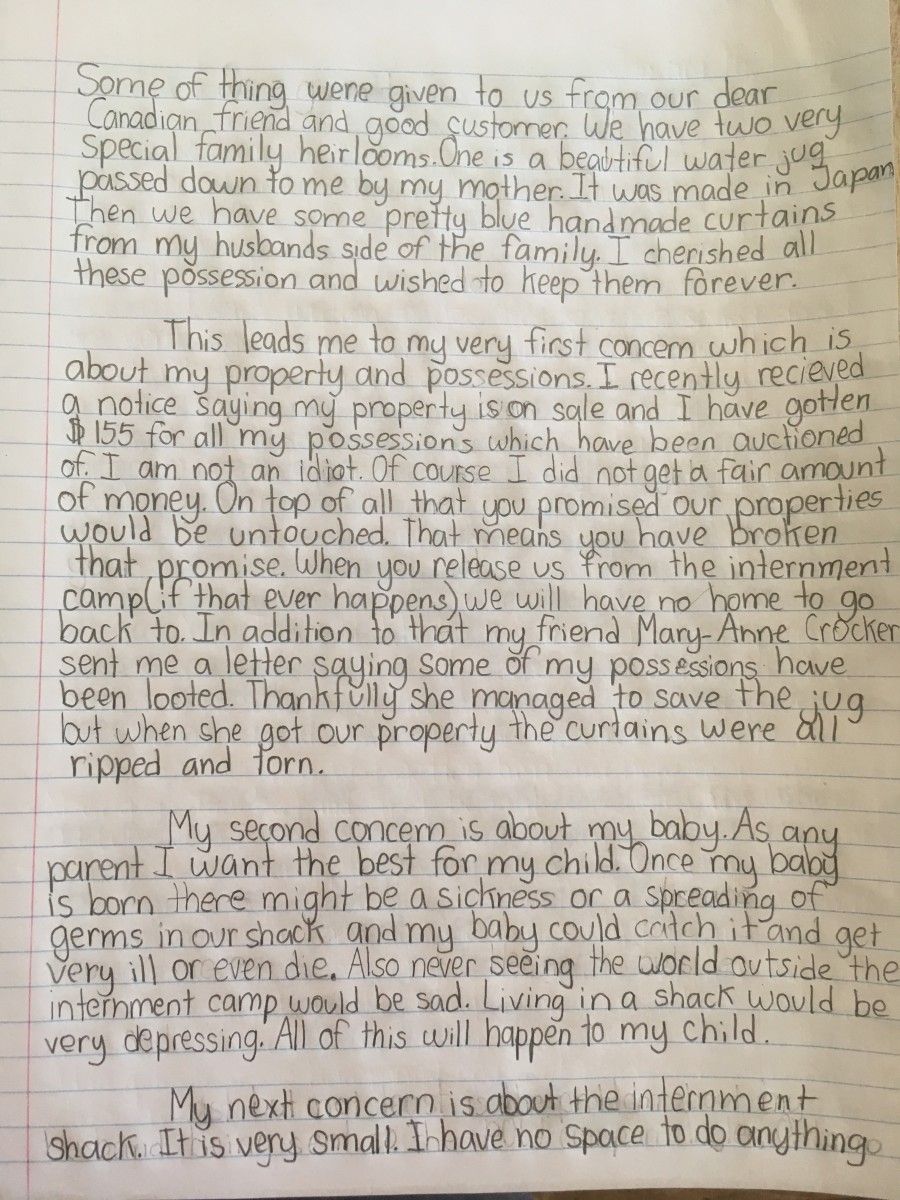 Some of thing were given to us from our dear
Canadian friend and good customer. We have two very
Special family heirlooms. One is a beautiful water jug
passed down to me by my mother. It was made in Japan
Then we have some pretty blue handmade curtains
from my husbands side of the family. I cherished all
these possession and wished to keep them forever.
This leads me to my very first concern which is
about my property and possessions. I recently recieved
a notice saying my property is on sale and I have gotten
$155 for all my possessions which have been auctioned
of. I am not an idiot. Of course I did not get a fair amount
of money. On top of all that you promised our properties
would be untouched. That means you have broken
that promise. When you release us from the internment
camp(if that ever happens) we will have no home to go
back to. In addition to that my friend Mary-Anne Crocker
sent me a letter saying some of my possessions have
been looted. Thankfully she managed to save the jug
but when she got our property the curtains were all
ripped and torn.
My second concern is about my baby. As any
parent I want the best for my child. Once my baby
is born there might be a sickness or a spreading of
germs in our shack and my baby could catch it and get
very ill or even die. Also never seeing the world outside the
internment camp would be sad. Living in a shack would be
very depressing. All of this will happen to my child.
My next concern is about the internment
shack. It is very small. I have no space to do anything